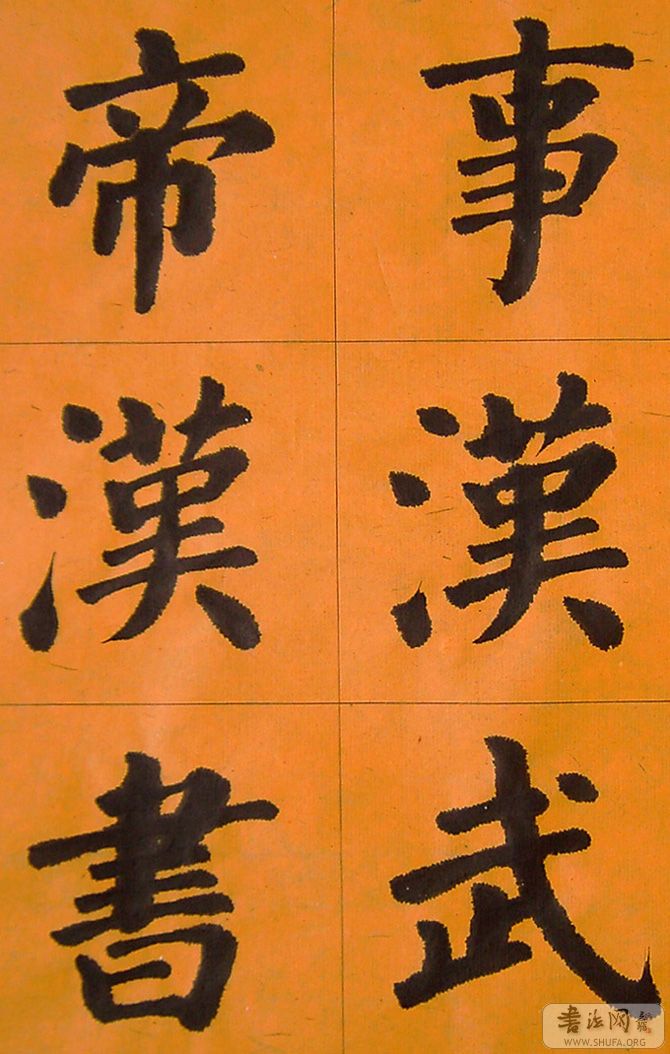 事漢武
帝漢書
书法网
WWW.SHUFA.ORG